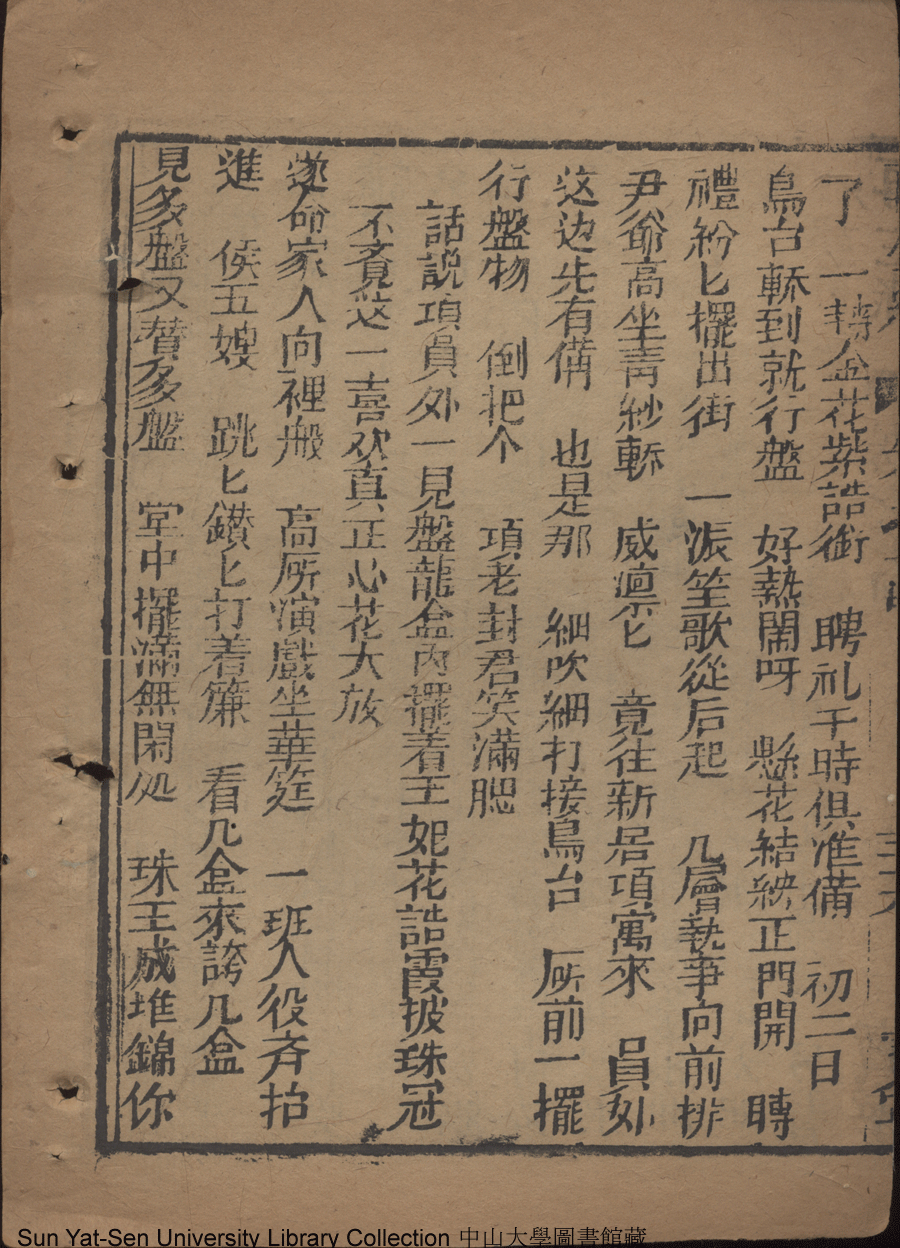 了　一轉金花紫誥銜　聘礼千時俱准備　初二日
鳥台轎到就行盤　好熱鬧呀　懸花結綵正門開　聘
禮紛匕擺出街　一派笙歌從后起　几層執事向前排
尹爺高坐青紗轎　威　匕　竟往新居項寓來　員外
这边先有備　也是那　細吹細打接鳥台　厛前一擺
行盤物　倒把个　項老封君笑滿腮
話説項員外一見盤龍盒內擺着王妃花誥霞披珠冠
不覔这一喜欢真正心花大放
遂命家人向裡搬　高厛演戲坐華筵　一班人役斉抬
進　侯五嫂　跳匕鑚匕打着簾　看几盒來誇几盒
見多盤又賛多盤　堂中擺滿無閑処　珠王成堆錦你
Sun Yat-Sen University Library Collection 中山大學圖書館藏